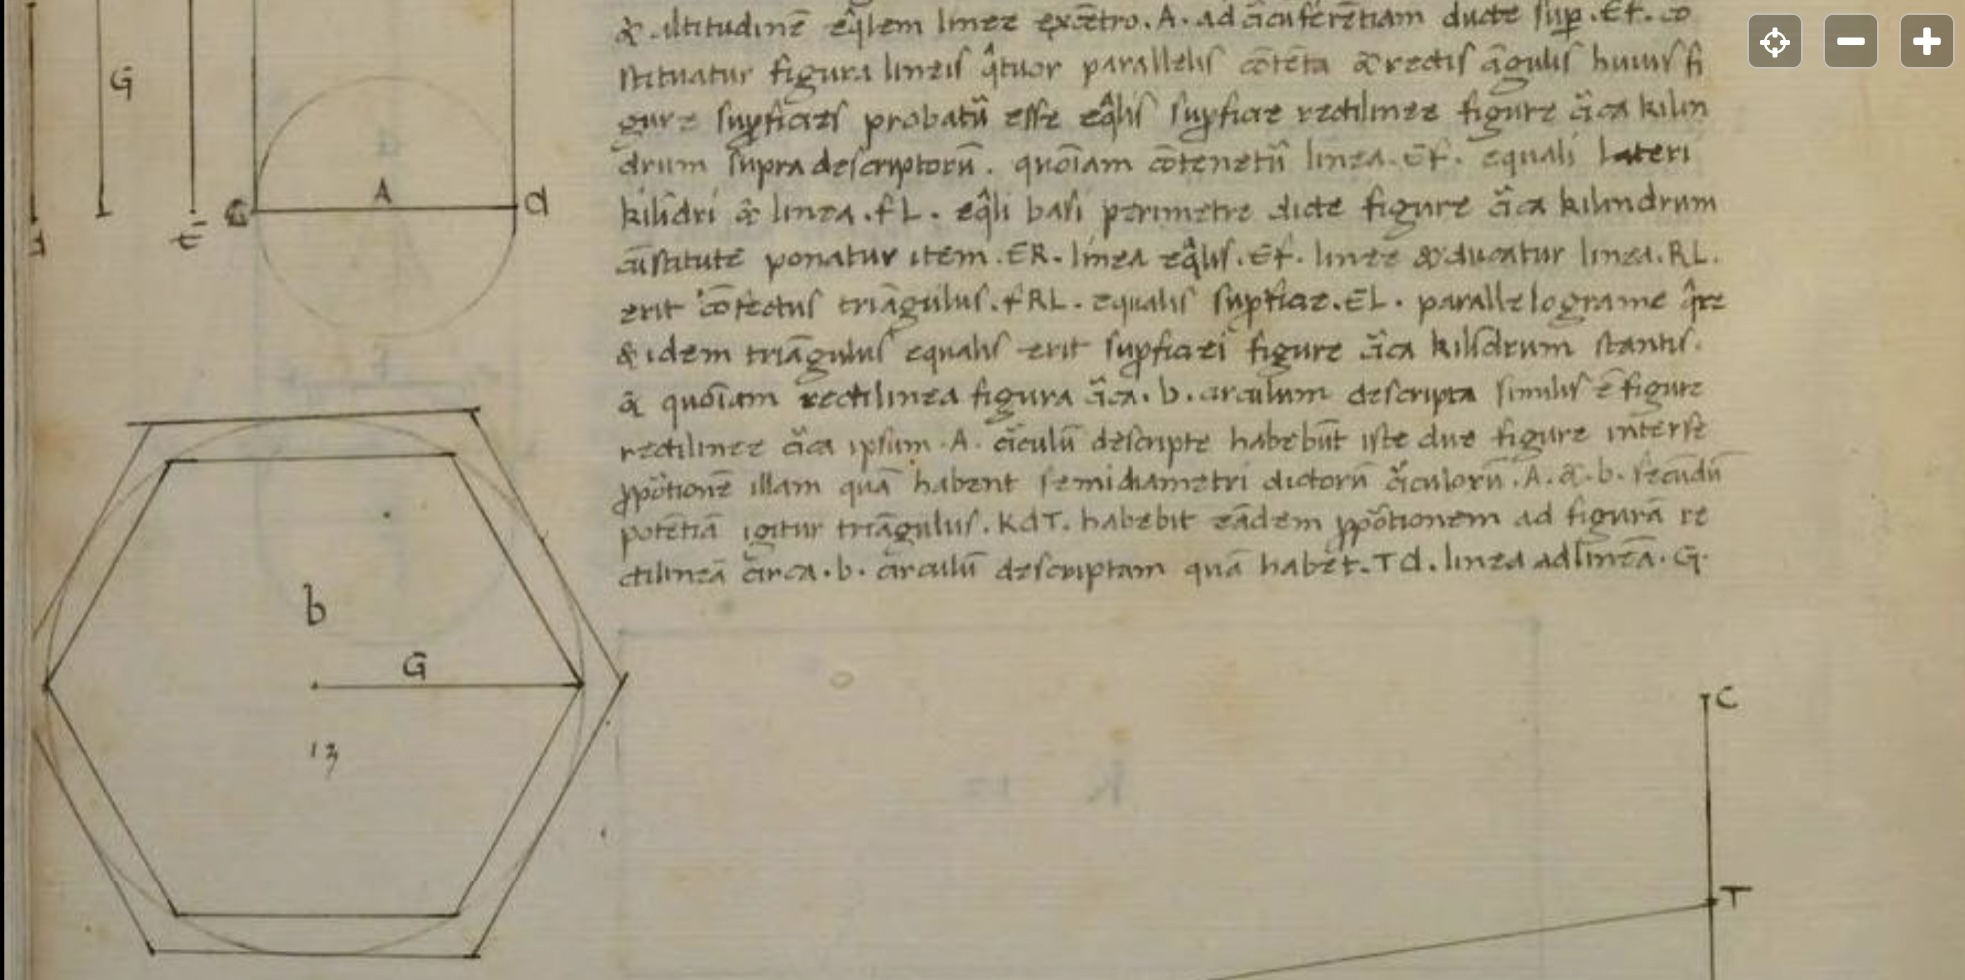 G
A
d
t
& altitudinē eq̄lem linee ex cētro. A. ad c̄icūferētiam ducte sup̱. Ef. co
stituatur figura lineis q̂tuor parallelis cōtēta & rectis āgulis huius fi
gure sup̱ficies probatū esse eq̂lis sup̱ficie rectilinee figure c̄ica kilin
drum supra descriptorū. quoīam cōtenetū linea. Ef. equali lateri
kilīdri & linea. fL. eq̂li basi perimetre dicte figure c̄ica kilindrum
cūstitute ponatur item. ER. linea eq̂lis. Ef. linee & ducatur linea. RL.
erit cōfectus triāgulus. fRL. equalis sup̱ficiae. EL. parallelograme q̂re
& idem triāgulus equalis erit sup̱ficiei figure c̄ica kilīdrum stantis.
& quoīam rectilinea figura c̄ica. b. circulum descripta similis ē figure
rectilinee c̄ica ipsum. A. c̄iculū descripte habebūt iste due figure interse
p̱pōtionē illam quā habent semidiametri dictorū c̄iculorū. A. & b. secūdū
potētiā igitur triāgulus. KdT. habebit eādem p̱pōtionem ad figurā re
ctilineā circa. b. circulū descriptam quā habet. Td. linea ad lineā. G.
b
G
13
C
T